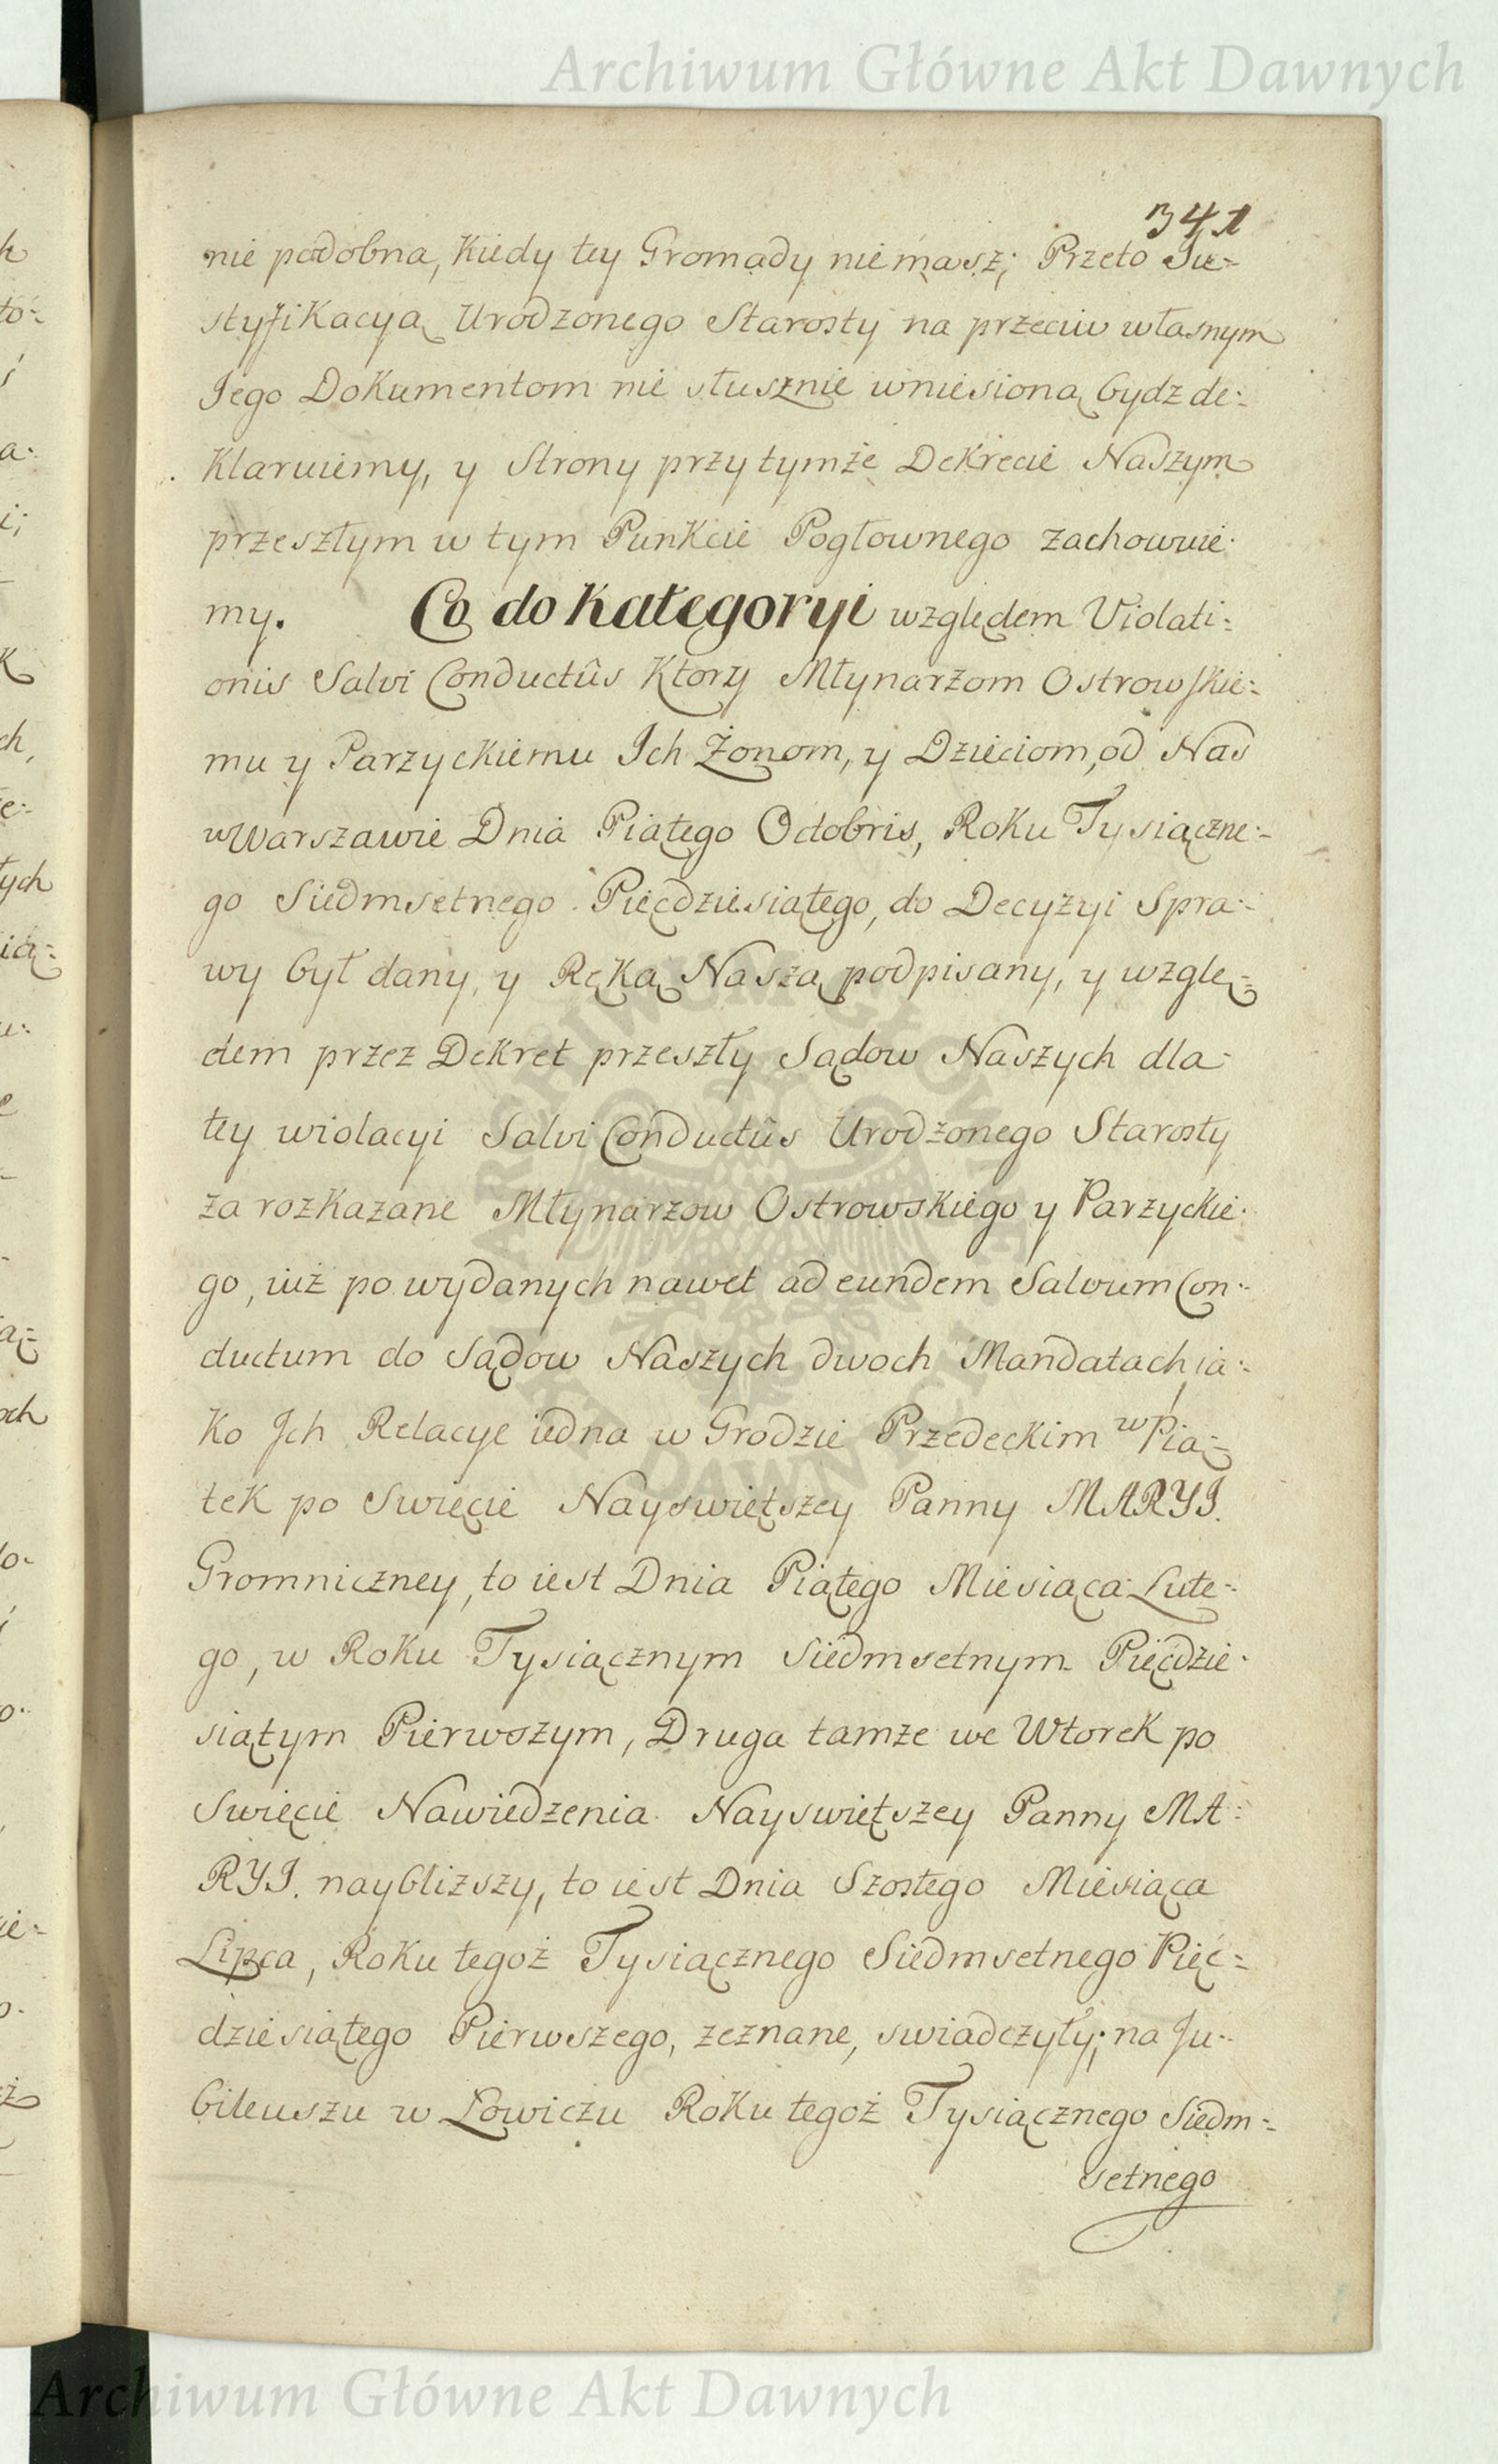 Archiwum Główne Akt Dawnych
341
nie podobna, Kiedy tey Gromady nie masz; Przeto Ju=
styfikacyą Urodzonego Starosty na przeciw własnym
Jego Dokumentom nie słusznie wniesioną bydz de=
klaruiemy, y Strony przy tymże Dekrecie Naszym
przeszłym w tym Punkcie Pogłownego zachowuie=
my. Co do Kategoryi względem Violati=
onis Salvi Conductûs Ktory Młynarzom Ostrowskie=
mu y Parzyckiemu Ich Żonom, y Dzieciom, od Nas
w Warszawie Dnia Piątego Octobris, Roku Tysiączne=
go Siedmsetnego Pięcdziesiątego, do Decyzyi Spra=
wy był dany, y Ręką Naszą podpisany, y wzglę=
dem przez Dekret przeszły Sądow Naszych dla
tey wiolacyi Salvi Conductûs Urodzonego Starosty
za rozkazane Młynarzow Ostrowskiego y Parzyckie=
go, iuż po wydanych nawet ad eundem Salvum Con=
ductum do Sądow Naszych dwoch Mandatach ia=
ko Ich Relacye iedna w Grodzie Przedeckim w Pią=
tek po Swięcie Nayswiętszey Panny MARYI.
Gromniczney, to iest Dnia Piątego Miesiąca Lute=
go, w Roku Tysiącznym Siedmsetnym Pięcdzie=
siątym Pierwszym, Druga tamze we Wtorek po
Swięcie Nawiedzenia Nayswiętszey Panny MA=
RYI. naybliższy, to iest Dnia Szostego Miesiąca
Lipca, Roku tegoż Tysiącznego Siedmsetnego Pięć=
dziesiątego Pierwszego, zeznane, swiadczyły; na Ju=
bileuszu w Łowiczu Roku tegoż Tysiącznego Siedm=
setnego
Archiwum Główne Akt Dawnych